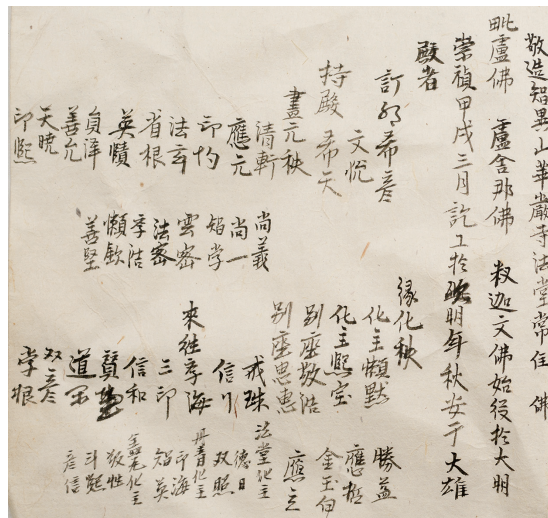 敬造智異山華嚴寺法堂常住 佛
毗盧佛 盧舍那佛 釈迦文佛始役於大明
崇禎甲戌三月訖工於明年秋安于大雄
殿者
緣化秩
證明希彥
文悅
持殿 希天
畫元秩
清軒
應元
印均
法玄
省根
英賾
貞澤
善允
天曉
印熙
尚義
尚一
智学
雲密
法密
季浩
懶欽
善堅
化主懶默
化主熙宝
別座敬浩
別座思惠
戒珠
信
來往李海
三印
信和
寶
道
双彥
李根
勝益
應哲
金玉伊
應立
法堂化主
德日
双照
丹青化主
印海
智英
盖瓦化主
敬性
斗
彥信